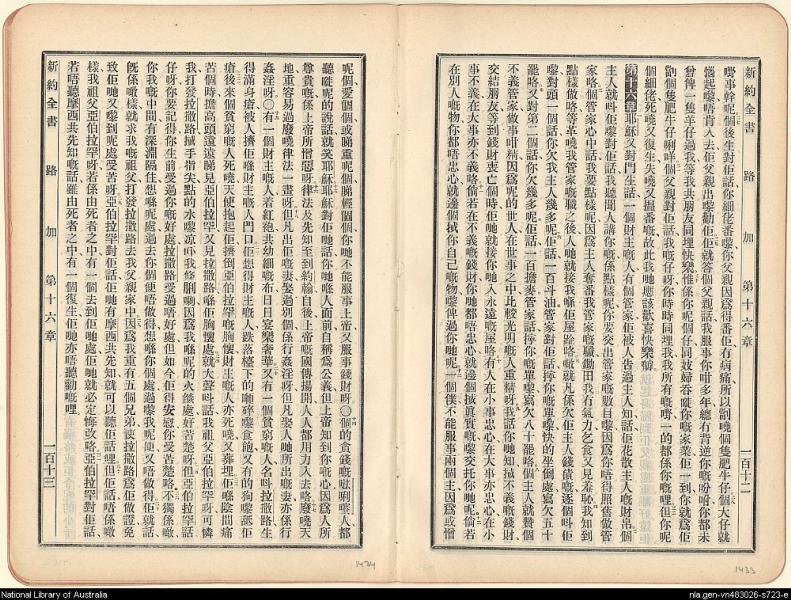 新約全書 路加 第十六章 一百十二
嘅事幹呢個後生對佢話你細佬番嚟你父親因爲得番佢有病痛所以劏嘵個隻肥牛仔個大仔就
惱起嚟唔肯入去佢父親出嚟勸佢佢就答個父親話我服事你咁多年總冇背逆你嘅吩咐你都未
曾俾一隻羊仔過我等我共朋友同埋快樂惟係你呢個仔同妓婦吞嘵你嘅家業佢一到你就爲佢
劏個隻肥牛仔咧咩個父親對佢話我嘅仔呀你時時同埋我我所有嘅嘢一的都係你嘅哩但你呢
個細佬死嘵又復生失嘵又揾番嘅故此我哋應該歡喜快樂㗎
第十六章耶穌又對門生話一個財主嘅人有個管家佢被人吿過主人知話佢花散主人嘅財帛個
主人就呌佢嚟對佢話我聽聞人講你嘅係點樣呢你要交出管家嘅數目嚟因爲你唔得照舊做管
家咯個管家心中話我要點樣呢因爲主人奪番我管家嘅職鋤田我冇氣力乞食又見羞恥我知到
點樣做咯等革嘵我管家嘅職之後人哋就接我喺佢屋跲咯噉就凡係欠佢主人錢債嘅逐個呌佢
嚟對頭一個話你欠我主人幾多呢佢話一百斗油管家對佢話擰你嘅單嚟快的坐倒處寫欠五十
罷咯又對第二個話你欠幾多呢佢話一百擔麥管家話擰你嘅單嚟寫欠八十罷咯個主人就贊個
不義管家做事咁精因爲呢的世人在世事之中比較光明嘅人重精呀我話你哋知揾不義嘅錢財
交結朋友等到錢財喪亡個時佢哋就接你哋入永遠嘅屋咯有人在小事忠心在大事亦忠心在小
事不義在大事亦不義咯倘若在不義嘅錢財你哋都唔忠心就邊個揾眞實嘅嚟交托你哋呢倘若
在別人嘅物你都唔忠心就邊個揾你自己嘅物嚟俾過你哋呢一個僕不能服事兩個主因爲或憎
呢個愛個個或睇重呢個睇輕個個你哋不能服事上帝又服事錢財呀〇個的貪錢嘅𠵽唎㘔人都
聽聞呢的說話就笑耶穌耶穌對佢哋話你哋喺人面前自稱爲公義但上帝知到你嘅心因爲人所
尊貴嘅係上帝所憎惡呀律法及先知至到約翰自後上帝嘅國傳揚開人人都用力入去咯廢嘵天
地重容易過廢嘵律法一畫呀但凡出佢嘅妻娶過別個係行姦淫呀但凡娶人哋所出嘅妻亦係行
姦淫呀〇有一個財主嘅人着紅袍共幼細嘅布日日宴樂奢華又有一個貧窮嘅人名呌拉撒路生
得滿身瘡被人擠佢喺財主嘅人門口佢想得財主嘅人跌落檯下的嘅碎嚟食飽又有的狗嚟䑛佢
瘡後來個貧窮嘅人死嘵天使抱起佢擠倒亞伯拉罕嘅胸懷財主嘅人亦死嘵又葬埋佢喺陰間痛
苦個時擔高頭遠遠睇見亞伯拉罕又見拉撒路喺佢胸懷處就大聲呌話我祖父亞伯拉罕呀可憐
我打發拉撒路揾手指尖點的水嚟凉吓我條脷喇因爲我喺呢的火𦦨處好苦楚呀但亞伯拉罕話
仔呀你要記得你生前受過你嘅好處拉撒路受過唔好處但如今佢得安慰你受苦楚咯不獨係噉
你我嘅中間有深淵隔住想喺呢處過去你個便唔做得想喺你個處過嚟我呢便又唔做得佢就話
旣係噉樣就求我嘅祖父打發拉撒路去我父親家中因爲我重有五個兄弟使拉撒路爲佢做證免
致佢哋又嚟到呢處受苦呀亞伯拉罕對佢話佢哋有摩西共先知就可以聽佢話哩但佢話唔係噉
樣我祖父亞伯拉罕呀若係由死者之中有一個去到佢哋處佢哋就必定悔改咯亞伯拉罕對佢話
若唔聽摩西共先知嘅話雖由死者之中有一個復生佢哋亦唔聽勸嘅哩
新約全書 路加 第十六章 一百十三
1434
1433
National Library of Australia
nla.gen-vn483026-s723-e